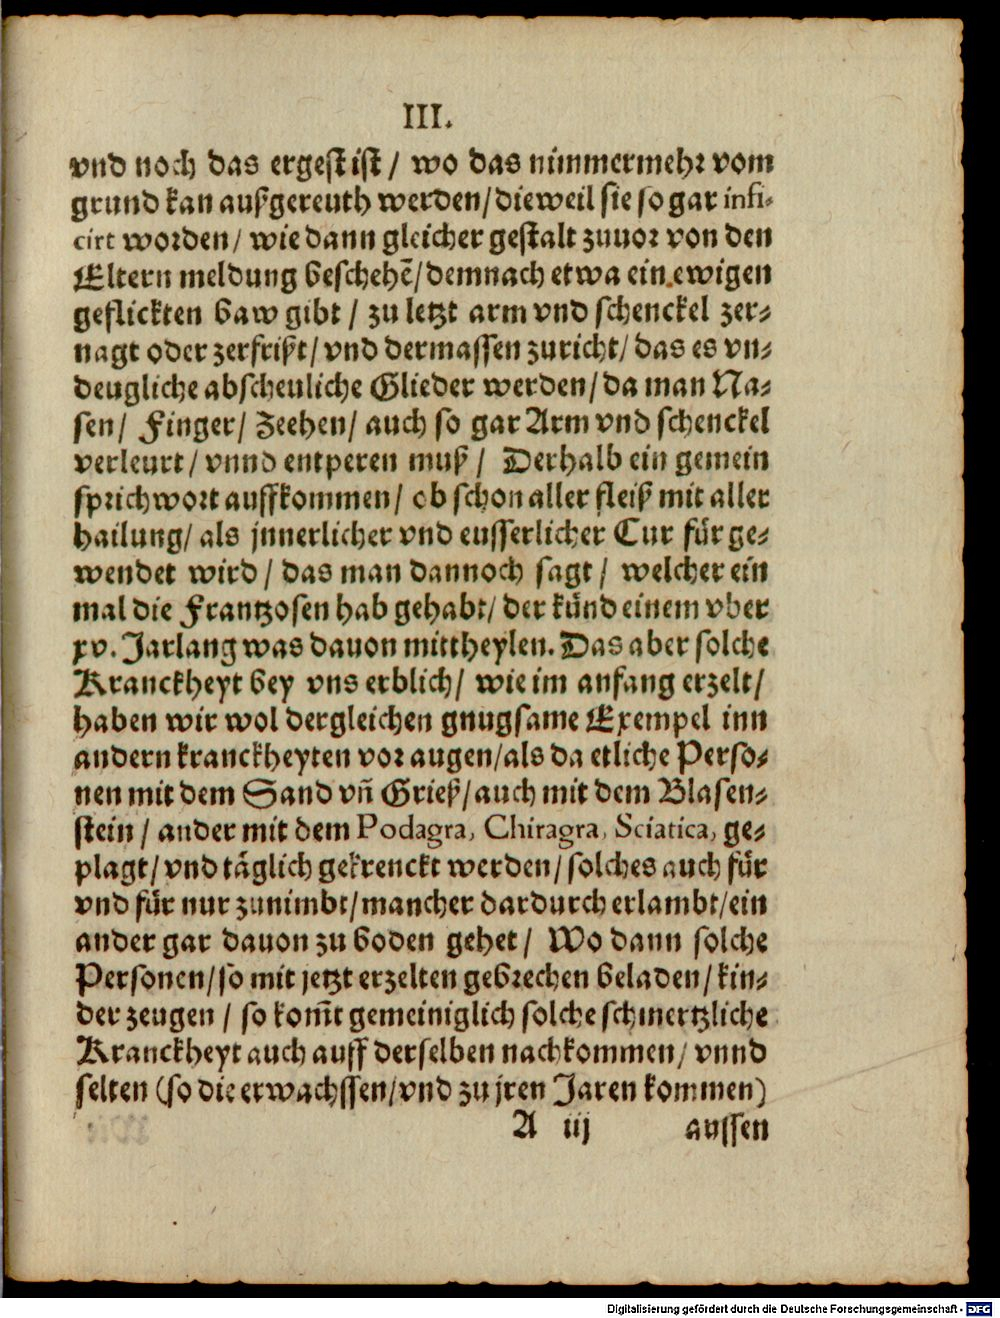 III.
vnd noch das ergest ist / wo das nimmermehr vom
grund kan außgereuth werden / dieweil sie so gar infi-
cirt worden / wie dann gleicher gestalt zuuor von den
Eltern meldung beschehē / demnach etwa ein ewigen
geflickten baw gibt / zu letzt arm vnd schenckel zer-
nagt oder zerfrißt / vnd dermassen zuricht / das es vn-
deugliche abscheuliche Glieder werden / da man Na-
sen / Finger / Zeehen / auch so gar Arm vnd schenckel
verleurt / vnnd entperen muß / Derhalb ein gemein
sprichwort auffkommen / ob schon aller fleiß mit aller
hailung / als jnnerlicher vnd eusserlicher Cur für ge-
wendet wird / das man dannoch sagt / welcher ein
mal die Frantzosen hab gehabt / der künd einem vber
xv. Jarlang was dauon mittheylen. Das aber solche
Kranckheyt bey vns erblich / wie im anfang erzelt /
haben wir wol dergleichen gnugsame Exempel inn
andern kranckheyten vor augen / als da etliche Perso-
nen mit dem Sand vñ Grieß / auch mit dem Blasen-
stein / ander mit dem Podagra, Chiragra, Sciatica, ge-
plagt / vnd täglich gekrenckt werden / solches auch für
vnd für nur zunimbt / mancher dardurch erlambt / ein
ander gar dauon zu boden gehet / Wo dann solche
Personen / so mit jetzt erzelten gebrechen beladen / kin-
der zeugen / so kom̄t gemeiniglich solche schmertzliche
Kranckheyt auch auff derselben nachkommen / vnnd
selten (so die erwachssen / vnd zu jren Jaren kommen)
A iij aussen
Digitalisierung gefördert durch die Deutsche Forschungsgemeinschaft - DFG